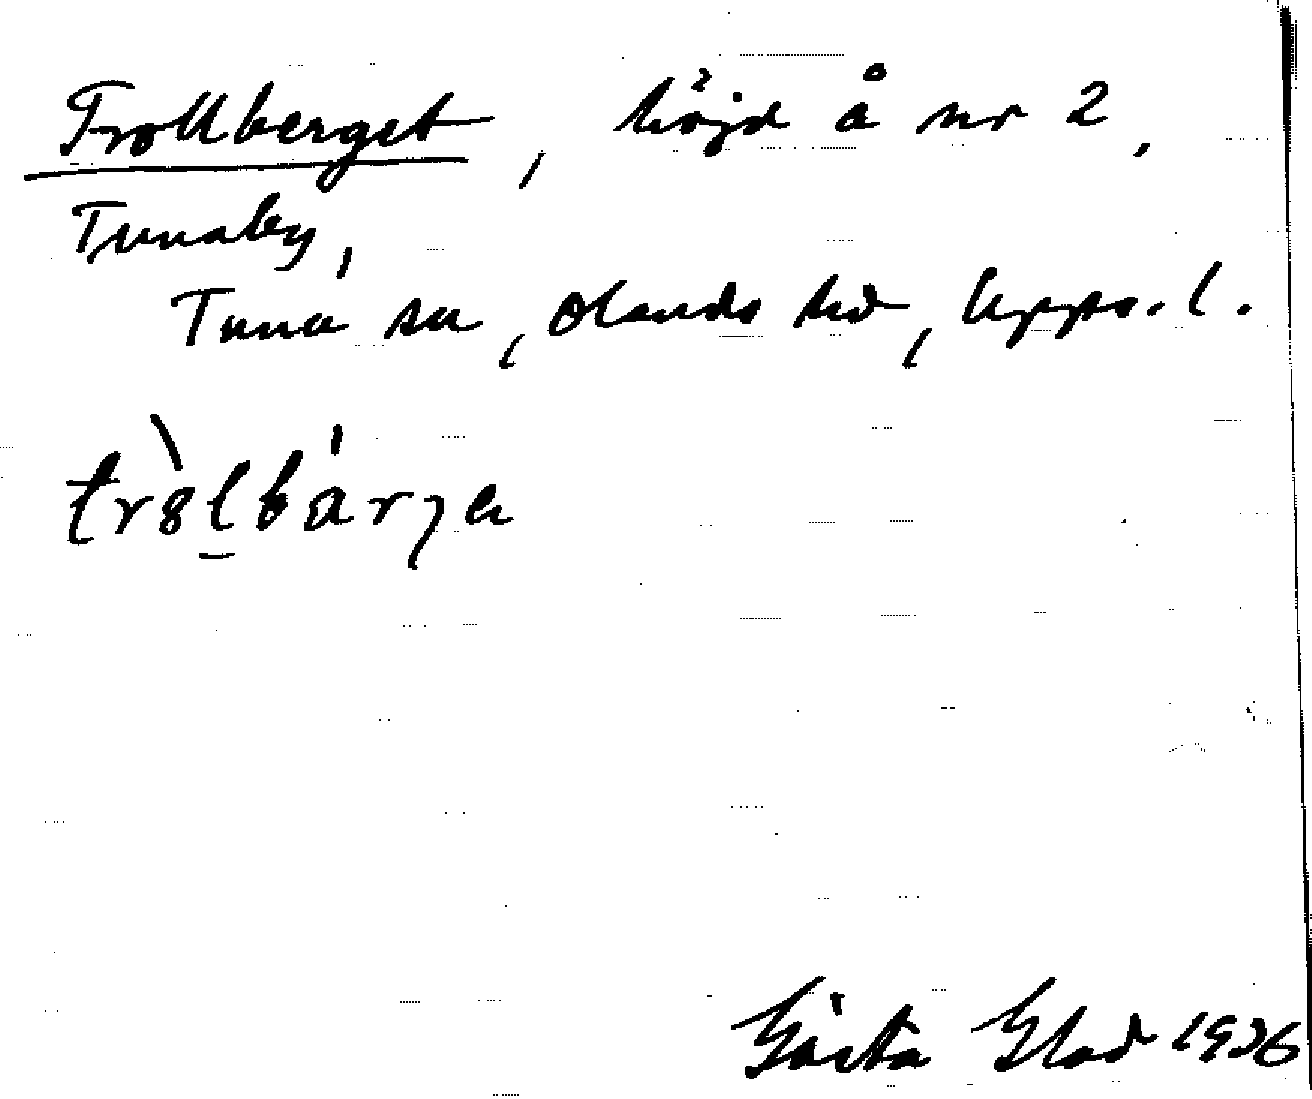 Trollberget, höjd å nr 2,
Tunaby,
Tuna sn, Olands hd, Upps. l.
tròl̠bárȷa
Gösta Glad 1936